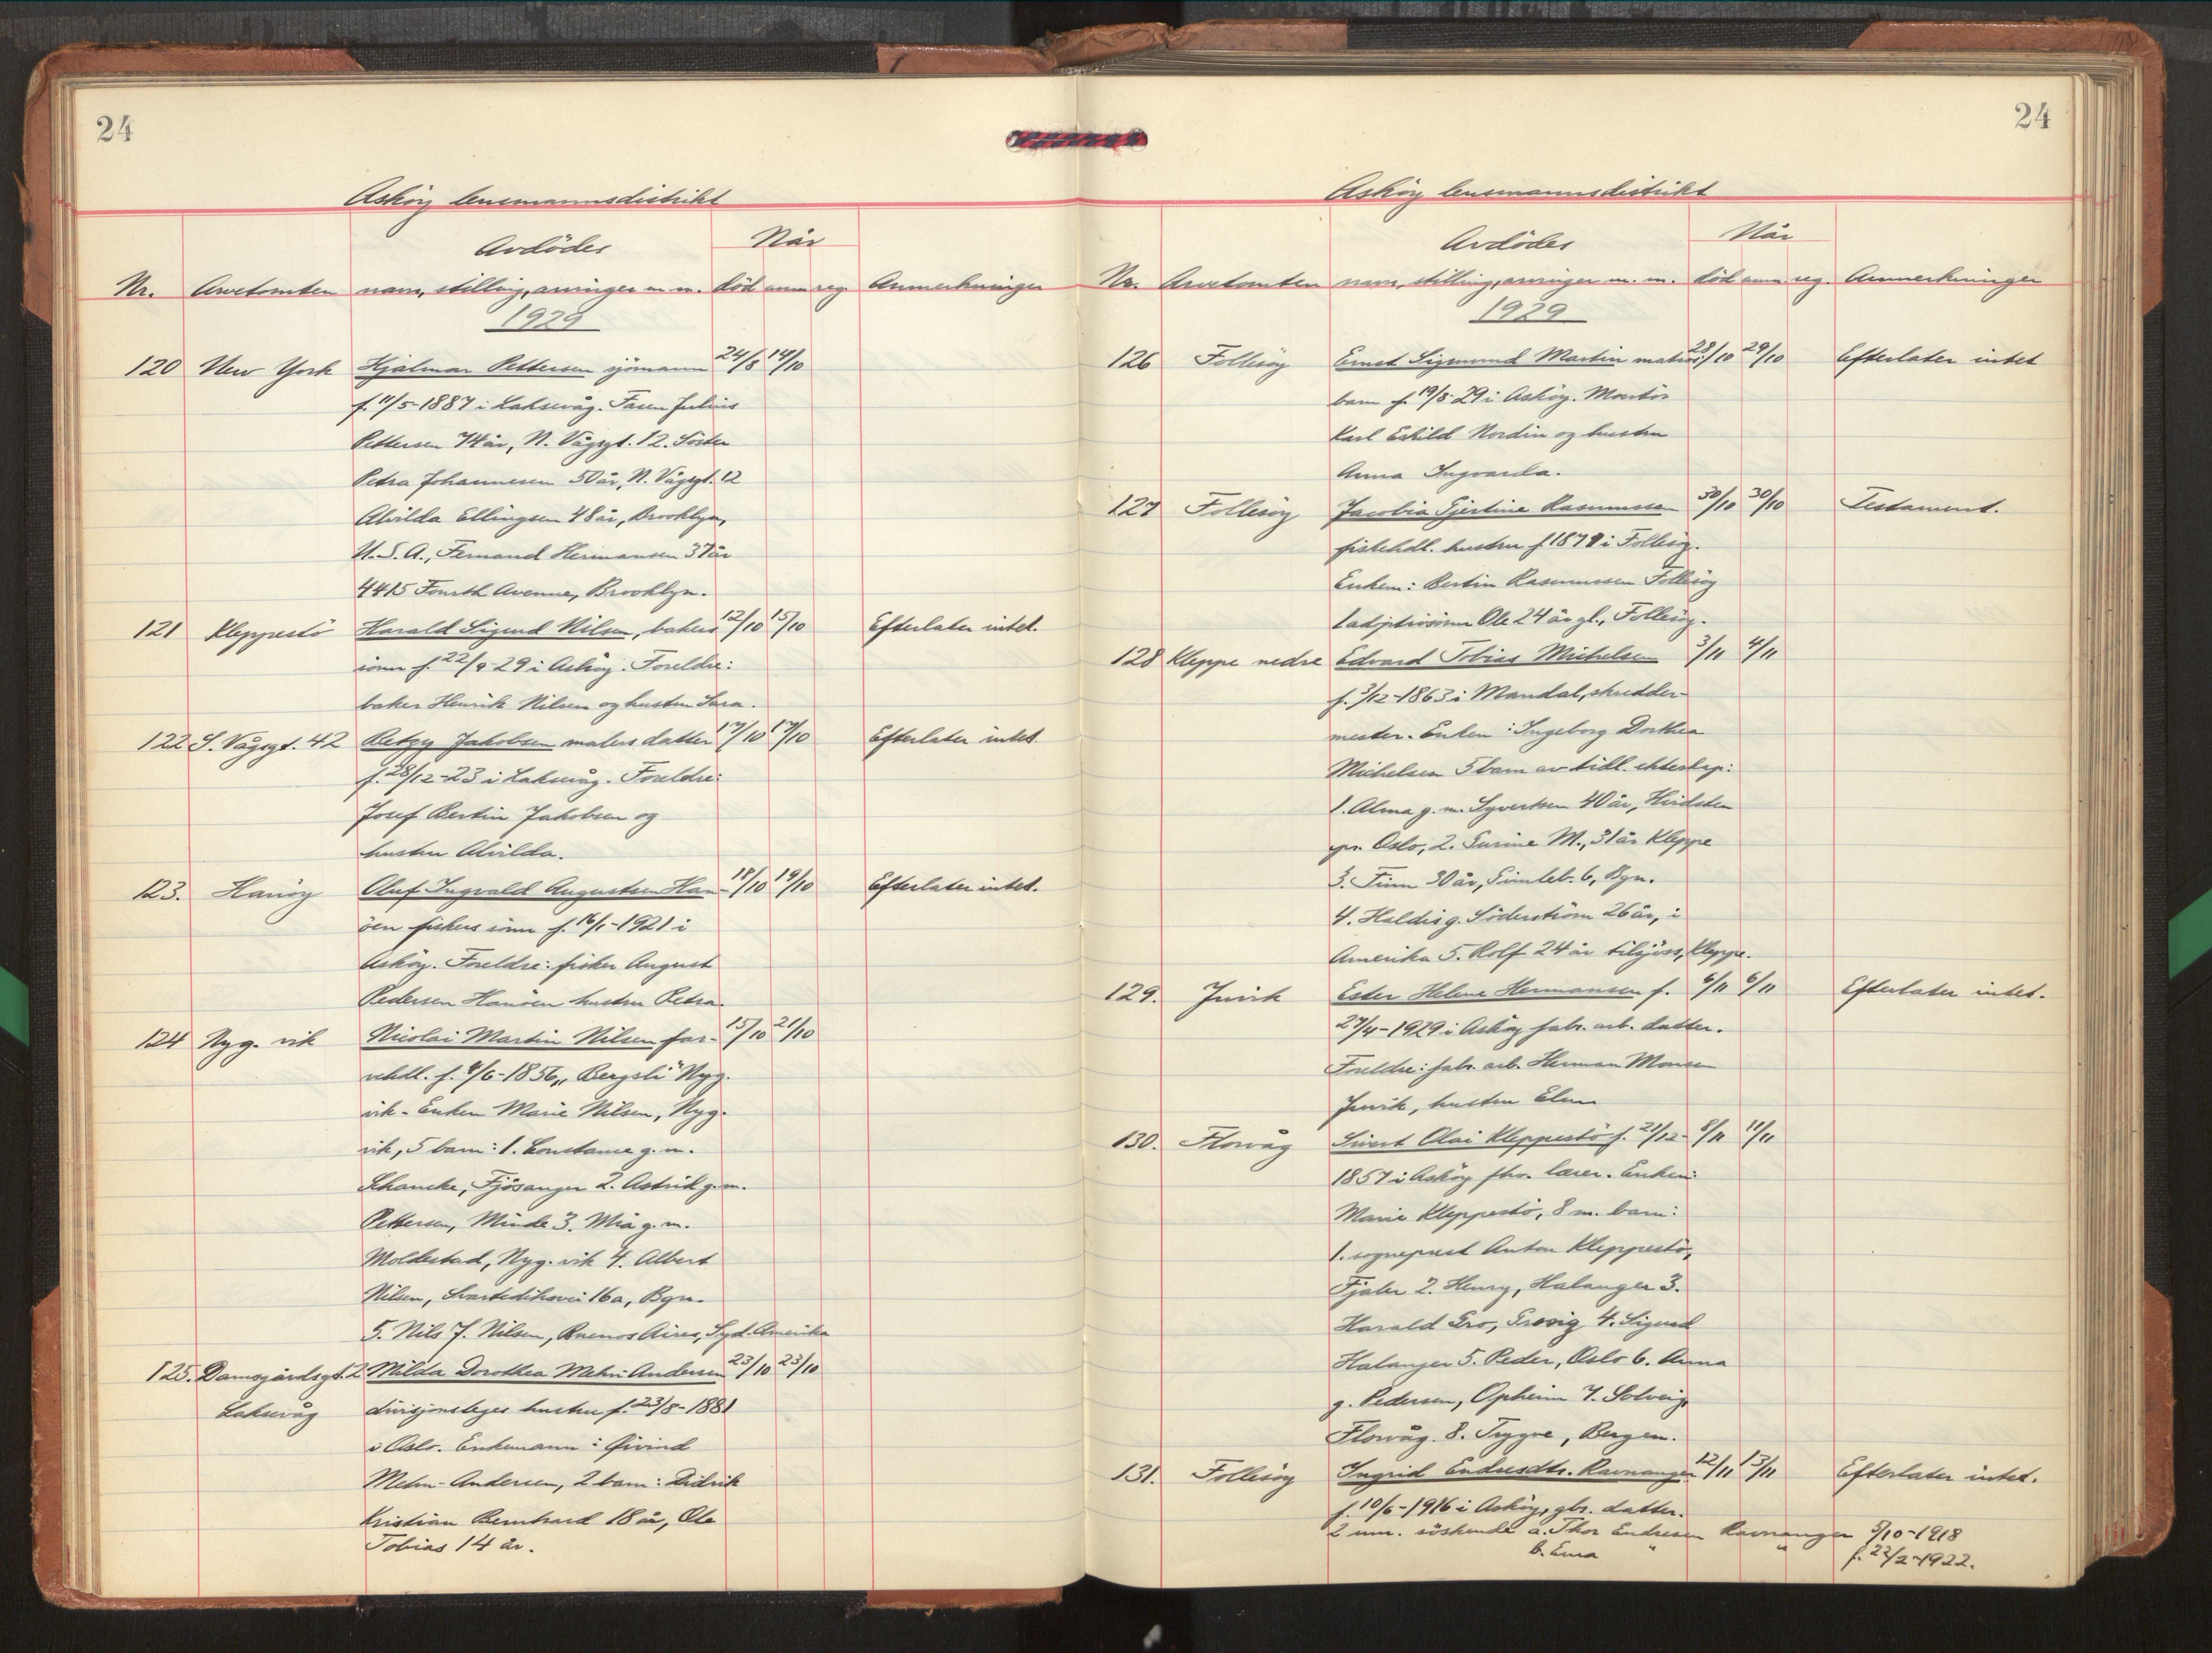 24
Askøy lensmannsdistrikt
Avdødes
Når
Nr. Arvetomten navn, stilling, arvinger m. m. død anm. reg. Anmerkninger
1929
120 New York Hjalmar Pettersen sjömann 24/8 14/10
f. 11/5-1887 i Laksevåg. Faren Julius
Pettersen 74 år, N. Vågsgt. 12. Söster
Petra Johannesen 50 år, N. Vågsgt. 12
Alvilda Ellingsen 48 år, Brooklyn,
U.S.A., Fernand Hermansen 37 år
4415 Fourth Avenue, Brooklyn.
121 Kleppestö Harald Sigurd Nilsen, bakers 12/10 15/10 Efterlater intet.
sönn f. 22/9-29 i Askøy. Foreldre:
baker Henrik Nilsen og hustru Sara.
122 S. Vågsgt. 42 Betzy Jakobsen malers datter 17/10 17/10 Efterlater intet.
f. 28/12-23 i Laksevåg. Foreldre:
Josef Bertin Jakobsen og
hustru Alvilda.
123. Hanöy Oluf Ingvald Augustsen Han- 18/10 19/10 Efterlater intet.
öen fiskers sönn f. 16/1-1921 i
Askøy. Foreldre: fisker August
Pedersen Hanöen hustru Petra.
124 Nyg. vik Nicolai Martin Nilsen far- 15/10 21/10
vehdl. f. 4/6-1856, "Bergsli" Nyg.
vik. Enken Marie Nilsen, Nyg.
vik, 5 barn: 1. Constance g. m.
Schancke, Fjösanger 2. Astrid g. m.
Pettersen, Minde 3. Mia g. m.
Moldestad, Nyg. vik 4. Albert
Nilsen, Svartediksvei 16a, Bgn.
5. Nils J. Nilsen, Buenos Aires, Syd-Amerika
125. Damsgårdsgt. 2 Milda Dorothea Mehn-Andersen 23/10 23/10
Laksevåg divisjonsleges hustru f. 23/8-1881
i Oslo. Enkemann: Øivind
Mehn-Andersen, 2 barn: Didrik
Kristian Bernhard 18 år, Ole
Tobias 14 år.
24
Askøy lensmannsdistrikt
Avdødes
Når
Nr. Arvetomten navn, stilling, arvinger m. m. død anm. reg. Anmerkninger
1929
126 Follesøy Ernst Sigmund Martin 28/10 29/10 Efterlater intet
barn f. 19/8-29 i Askøy. Montör
Karl Eskild Nordin og hustru
Anna Ingvarda.
127 Follesøy Jacobia Gjertine Rasmussen 30/10 30/10 Testament.
fiskehdl. hustru f. 1871 i Follesøy.
Enkem: Bertin Rasmussen Follesøy
1 adoptivsönn Ole 24 år gl., Follesøy.
128 Kleppe nedre Edvard Tobias Michelsen 3/11 4/11
f. 3/12-1863 i Mandal, skredder-
mester. Enken: Ingeborg Dorthea
Michelsen 5 barn av tidl. ekteskap:
1. Alma g. m. Syvertsen 40 år,
pr. Oslo, 2. M., 31 år Kleppe
3. Finn 30 år, 6, Bgn.
4. Haldis g. Söderström 26 år, i
Amerika 5. Rolf 24 år tilsjöss, Kleppe.
129. Juvik Ester Helene Hermansen f. 6/11 6/11 Efterlater intet.
27/4-1929 i Askøy fabr. arb. datter.
Foreldre: fabr. arb. Herman Monsen
Juvik, hustru Elen
130. Florvåg Sivert Olai Kleppestö f. 21/12- 8/11 11/11
1857 i Askøy fhv. lærer. Enken:
Marie Kleppestö, 8 m. barn:
1. sogneprest Anton Kleppestö,
Fjaler 2. Henry, Halanger 3.
Harald Gro, 4. Sigurd
Halanger 5. Peder, Oslo 6. Anna
g. Pedersen, Opheim 7. Solveig,
Florvåg. 8. Trygve, Bergen.
131. Follesøy Ingrid Endresdtr. Ravnanger 12/11 13/11 Efterlater intet.
f. 10/6-1916 i Askøy, gbr. datter.
2 um. söskende a. Thor Endresen Ravnanger 5/10-1918
b. Erna " " f. 22/2-1922.